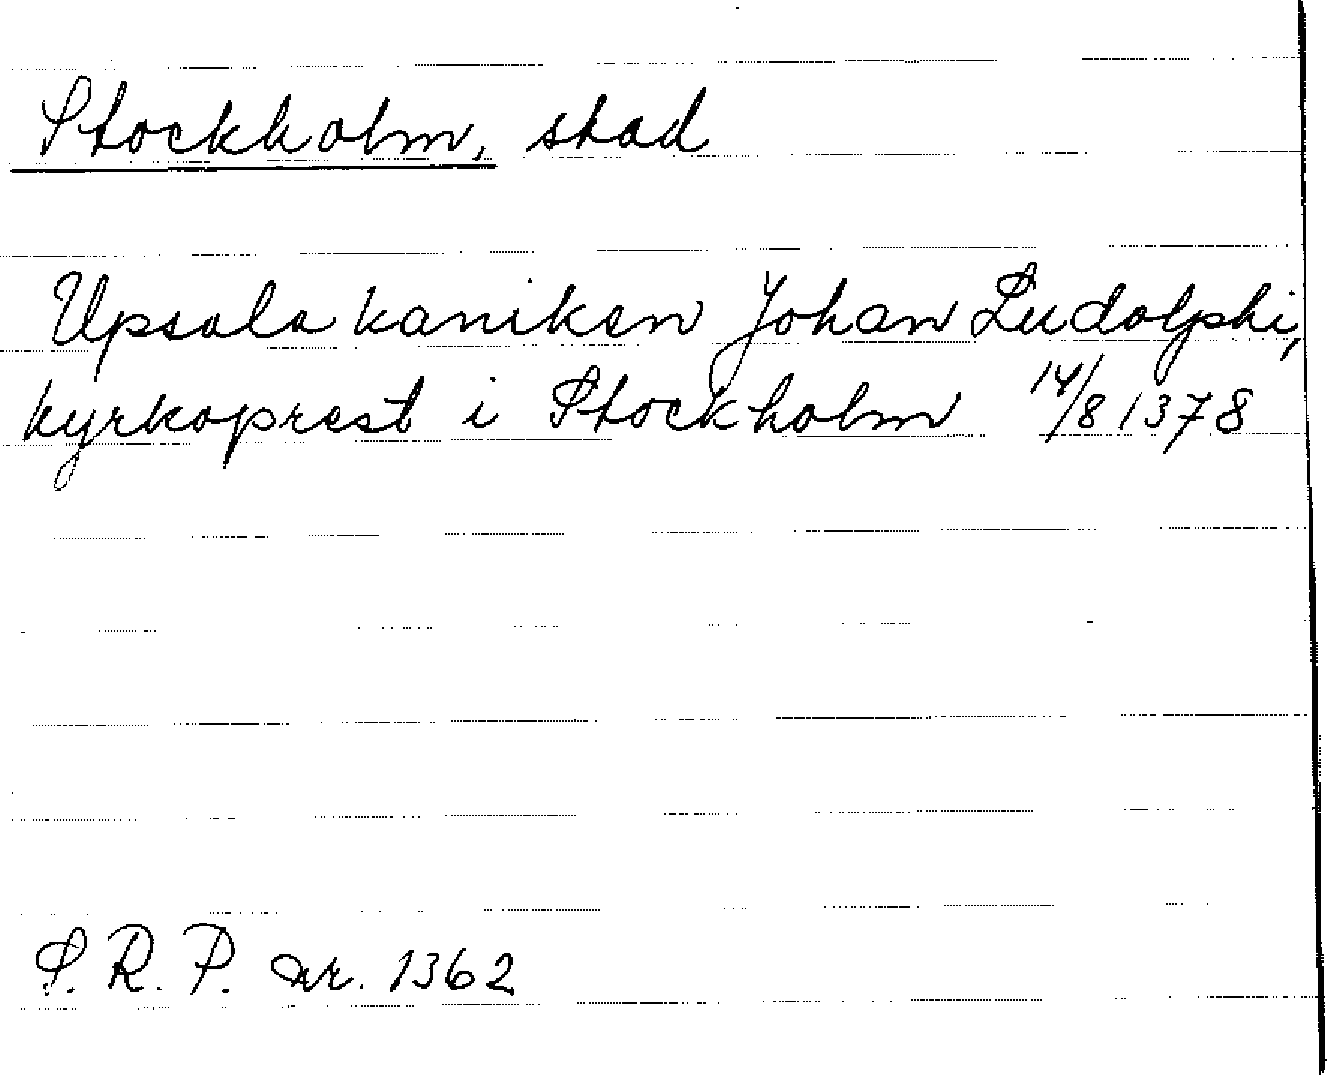 Stockholm, stad
Upsala kaniken Johan Ludolphi,
kyrkoprest i Stockholm 14/8 1378
S. R. P. nr. 1362